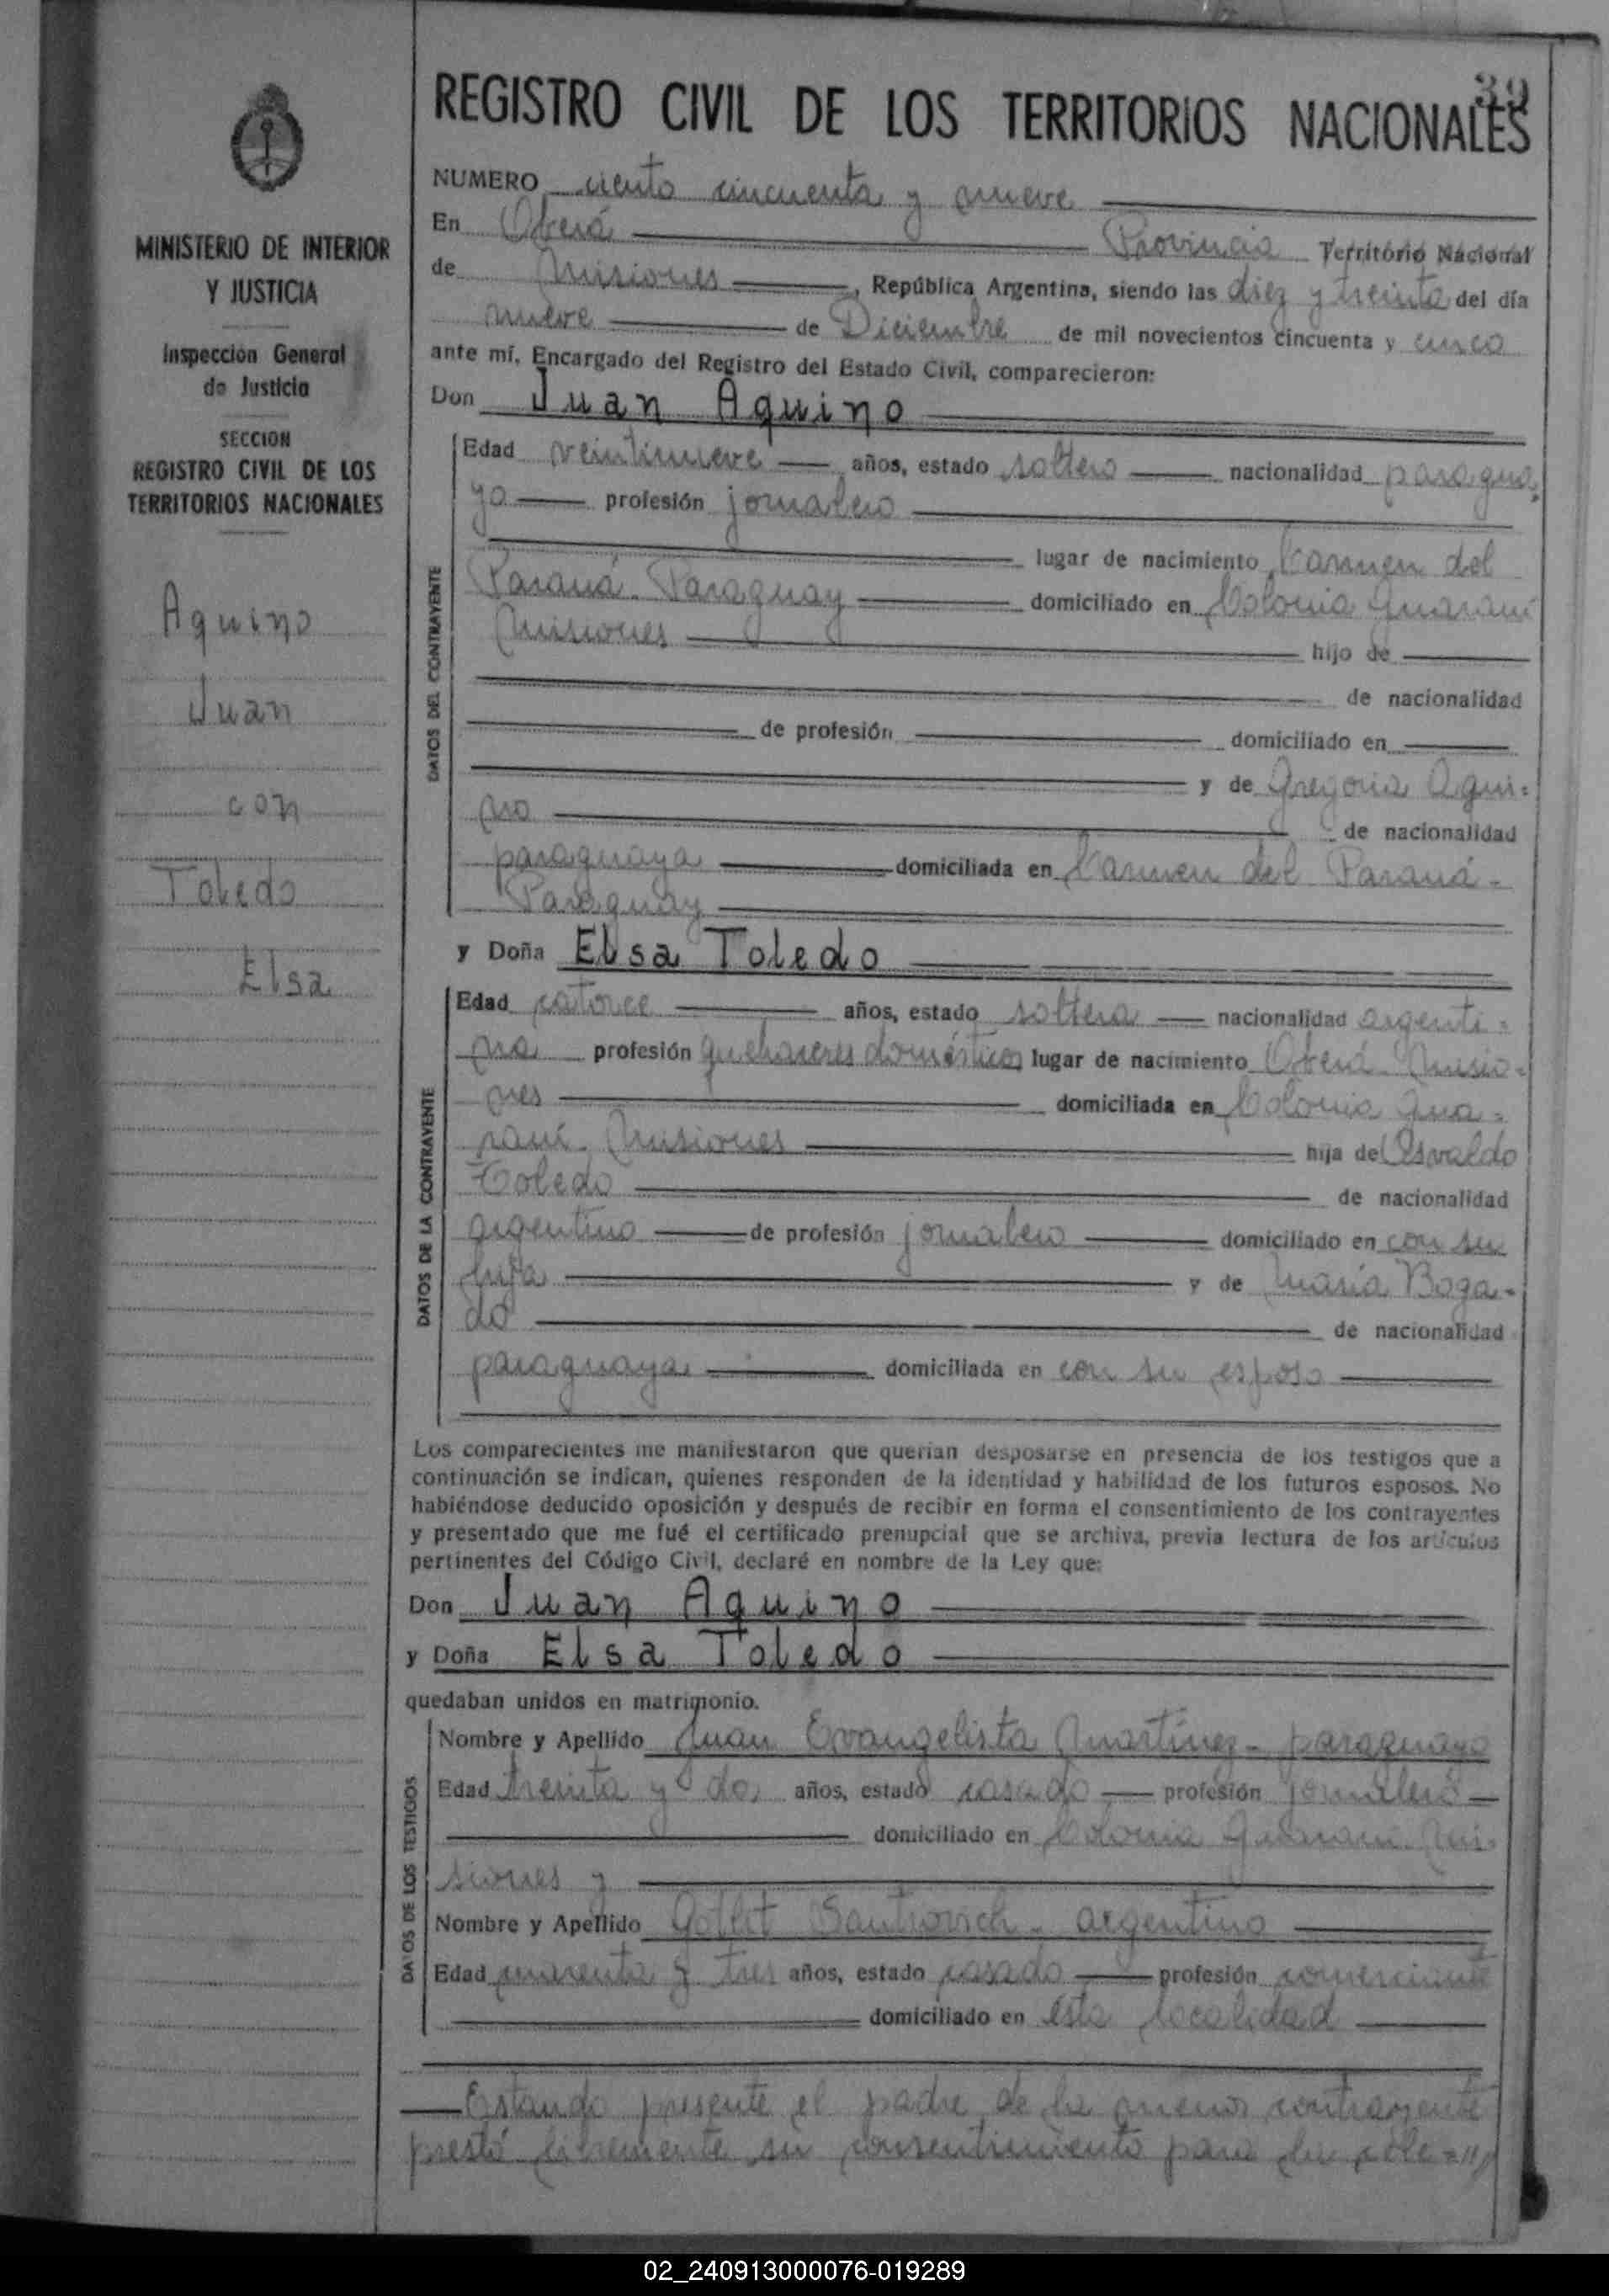 39
REGISTRO CIVIL DE LOS TERRITORIOS NACIONALES
MINISTERIO DE INTERIOR
Y JUSTICIA
Inspección General
de Justicia
SECCION
REGISTRO CIVIL DE LOS
TERRITORIOS NACIONALES
Aquino
Juan
con
Toledo
Elsa
NUMERO ciento cincuenta y nueve
En Oberá Provincia Territorio Nacional
de Misiones, República Argentina, siendo las diez y treinta del día
nueve de Diciembre de mil novecientos cincuenta y cinco
ante mí, Encargado del Registro del Estado Civil, comparecieron:
Don Juan Aquino
DATOS DEL CONTRAYENTE
Edad veintinueve años, estado soltero nacionalidad paragua
yo profesión jornalero
lugar de nacimiento Carmen del
Paraná. Paraguay domiciliado en Colonia Guaraní
Misiones hijo de
de nacionalidad
de profesión domiciliado en
y de Gregoria Aqui=
no de nacionalidad
paraguaya domiciliada en Carmen del Paraná-
Paraguay
y Doña Elsa Toledo
DATOS DE LA CONTRAYENTE
Edad catorce años, estado soltera nacionalidad argenti=
na profesión quehaceres domésticos lugar de nacimiento Oberá Misio=
nes domiciliada en Colonia Gua=
raní. Misiones hija de Osvaldo
Toledo de nacionalidad
argentino de profesión jornalero domiciliado en con su
hija y de María Boga=
do de nacionalidad
paraguaya domiciliada en con su esposo
Los comparecientes me manifestaron que querían desposarse en presencia de los testigos que a
continuación se indican, quienes responden de la identidad y habilidad de los futuros esposos. No
habiéndose deducido oposición y después de recibir en forma el consentimiento de los contrayentes
y presentado que me fué el certificado prenupcial que se archiva, previa lectura de los artículos
pertinentes del Código Civil, declaré en nombre de la Ley que:
Don Juan Aquino
y Doña Elsa Toledo
quedaban unidos en matrimonio.
DATOS DE LOS TESTIGOS
Nombre y Apellido Juan Evangelista Martínez - paraguayo
Edad treinta y dos años, estado casado profesión jornalero
domiciliado en Colonia Guaraní. Mi=
siones y
Nombre y Apellido - argentino
Edad cuarenta y tres años, estado casado profesión comerciante
domiciliado en ésta localidad
Estando presente el padre de la menor contrayente
prestó libremente su consentimiento para la cele=//
02_240913000076-019289